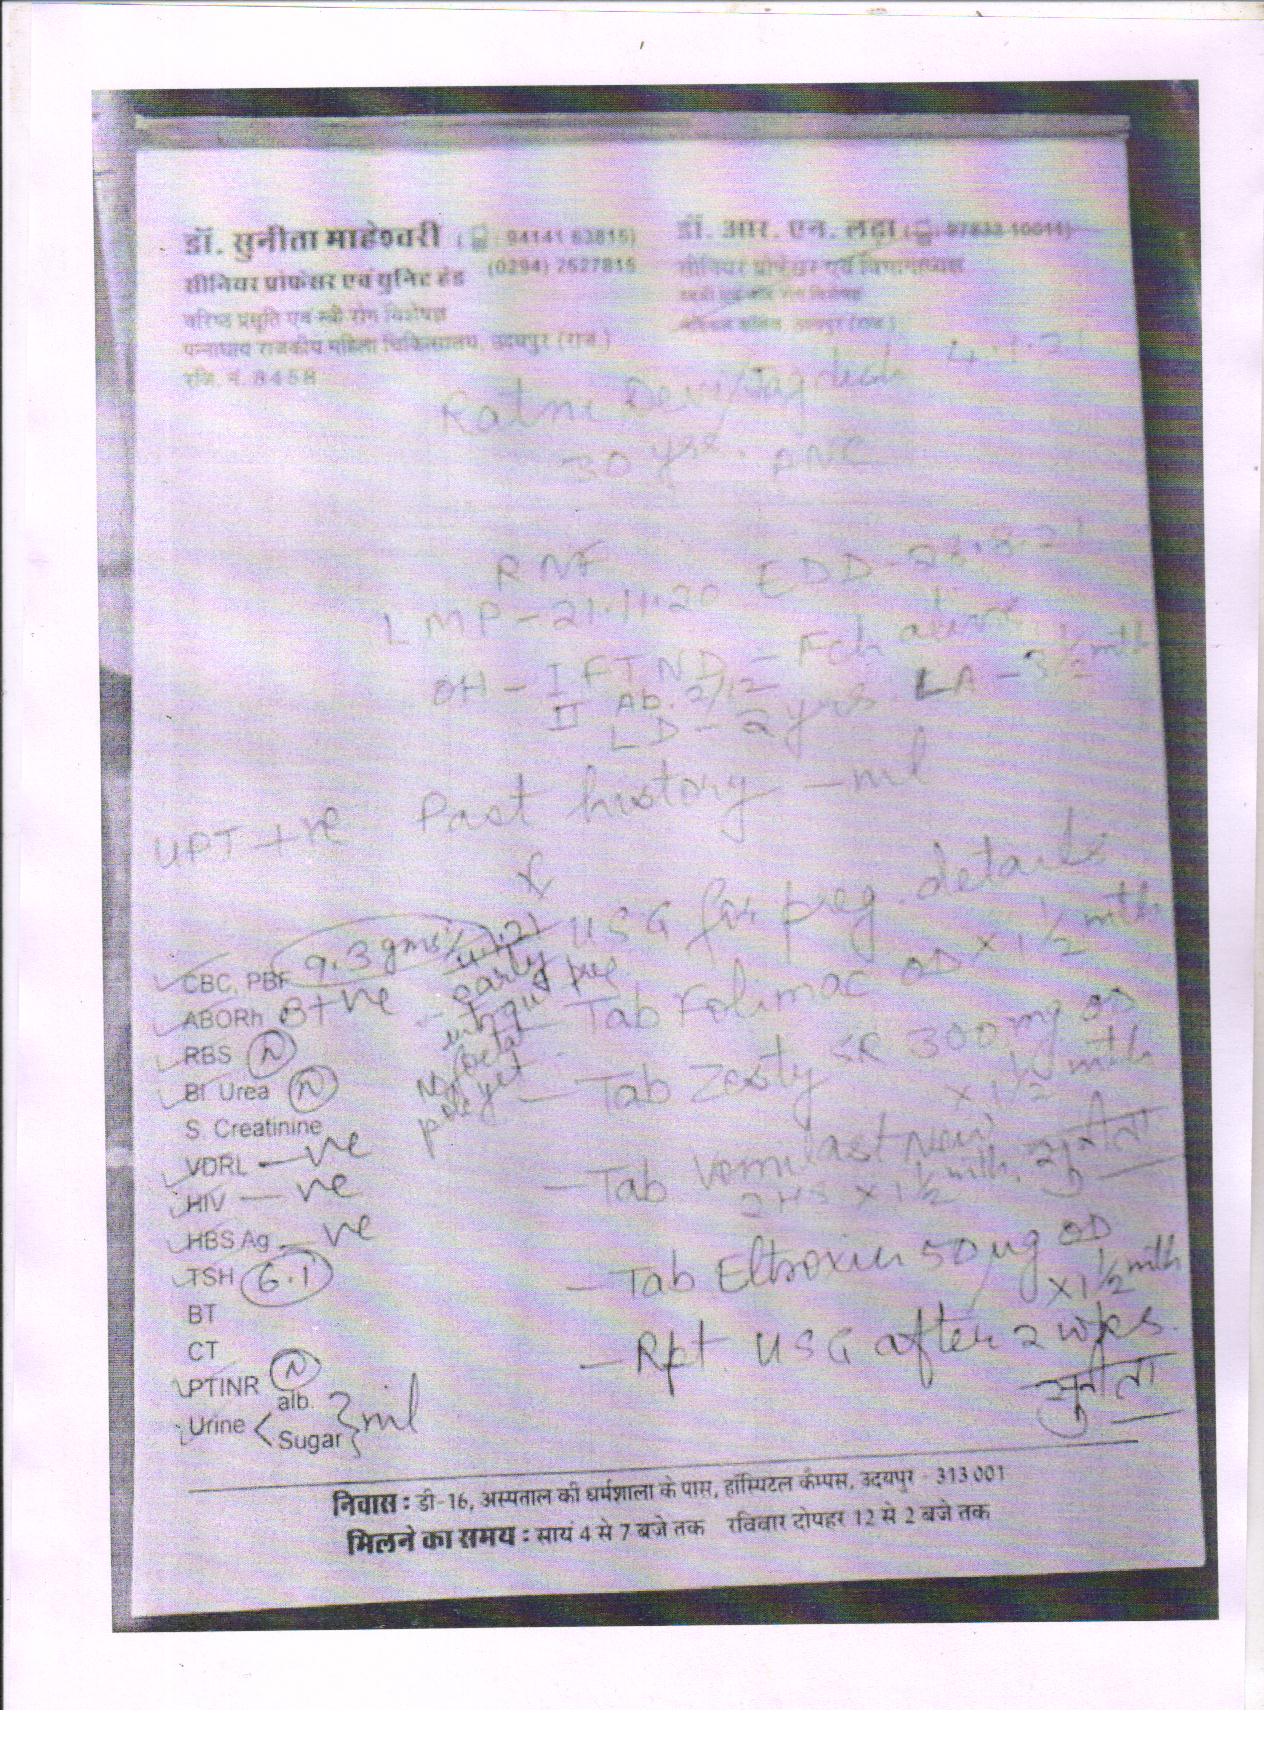 डॉ. सुनीता माहेश्वरी
(0294) 2527815
सीनियर प्रोफेसर एवं युनिट हेड
वरिष्ठ प्रसूति एवं स्त्री रोग विशेषज्ञ
पन्नाधाय राजकीय महिला चिकित्सालय, उदयपुर (राज.)
रजि. नं. 8458
डॉ. आर. एन. लढ़ा
सीनियर प्रोफेसर एवं विभागाध्यक्ष
4.1.21
Ratni Devi/Jagdish
30 yrs. ANC
LMP - 21.11.20 EDD - 28.8.21
OH - I FTND - Fch alive
II Ab. 2/12
LD - 2 yrs. LA - 3 1/2 mth
UPT +ve Past history - nil
USG for preg. details
- Tab Folimac OD x 1 1/2 mth
- Tab Zesty SR 300 mg OD
x 1 1/2 mth
- Tab Vomilast New
2 HS x 1 1/2 mth.
सुनीता
- Tab Eltroxin 50 µg OD
x 1 1/2 mth
- Rpt. USG after 2 wks.
सुनीता
CBC, PBF 9.3 gms%
ABORh B+ve
RBS N
Bl Urea N
S. Creatinine
VDRL - ve
HIV - ve
HBS Ag - ve
TSH 6.1
BT
CT
PTINR N
Urine < alb. Sugar } nil
- early
preg
No foetal
pole yet
निवास : डी-16, अस्पताल की धर्मशाला के पास, हॉस्पिटल कैम्पस, उदयपुर - 313 001
मिलने का समय : सायं 4 से 7 बजे तक रविवार दोपहर 12 से 2 बजे तक